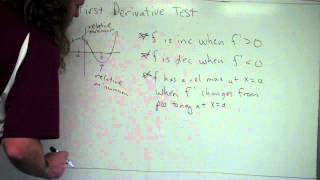 First Derivative Test
relative
maximum
* f is inc when f' > 0
* f is dec when f' < 0
relative
minimum
* f has a rel max at x=a
when f' changes from
pos to neg at x=a.